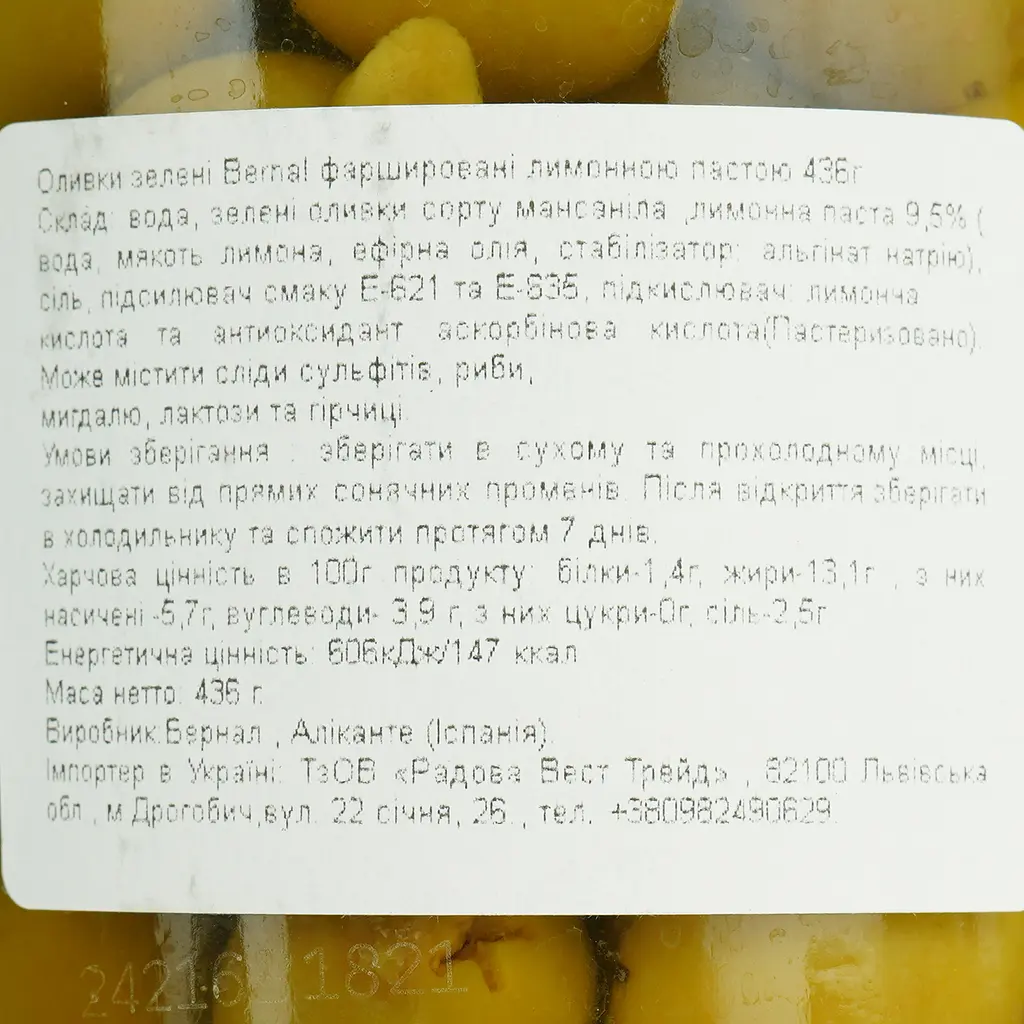 Оливки зелені Bernal фаршировані лимонною пастою 436г
Склад: вода, зелені оливки сорту мансаніла ,лимонна паста 9,5% (
вода, мякоть лимона, ефірна олія, стабілізатор: альгінат натрію),
сіль, підсилювач смаку Е-621 та Е-635, підкислювач: лимонна
кислота та антиоксидант аскорбінова кислота(Пастеризовано).
Може містити сліди сульфітів, риби,
мигдалю, лактози та гірчиці.
Умови зберігання : зберігати в сухому та прохолодному місці,
захищати від прямих сонячних променів. Після відкриття зберігати
в холодильнику та спожити протягом 7 днів.
Харчова цінність в 100г продукту: білки-1,4г, жири-13,1г , з них
насичені -5,7г, вуглеводи- 3,9 г, з них цукри-0г, сіль-2,5г
Енергетична цінність: 606кДж/147 ккал
Маса нетто: 436 г.
Виробник:Бернал , Аліканте (Іспанія).
Імпортер в Україні: ТзОВ «Радова Вест Трейд» , 82100 Львівська
обл., м.Дрогобич,вул. 22 січня, 26., тел. +380982490629.